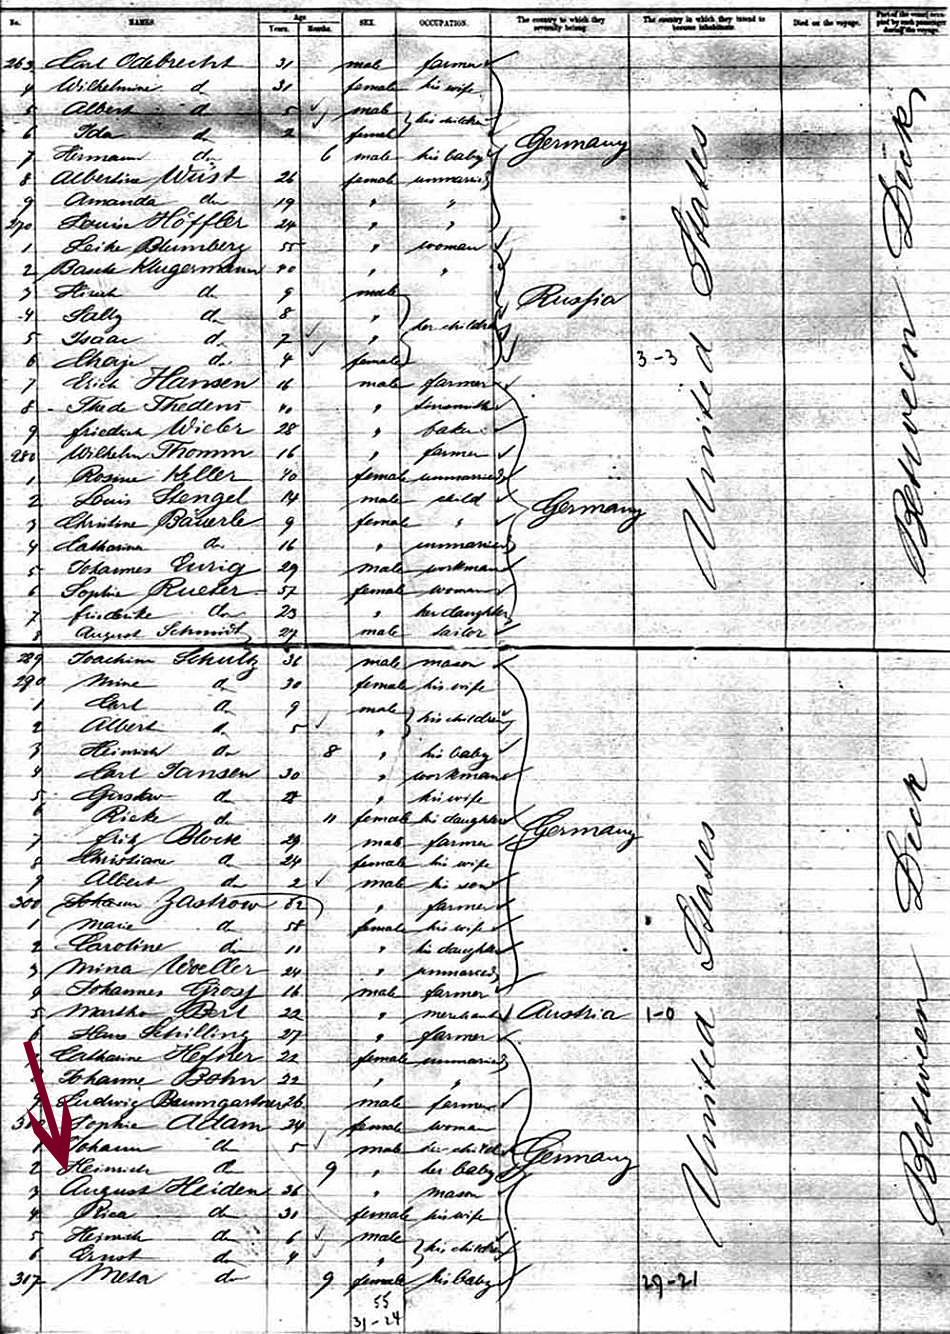 No. NAMES. Age Years. Months. SEX. OCCUPATION. The country to which they severally belong. The country in which they intend to become inhabitants. Died on the voyage. Part of the vessel occupied by each passenger during the voyage.
263 Carl Odebrecht 31 male farmer
4 Wilhelmine do 31 female his wife
5 Albert do 5 male his children
6 Ida do 2 female
7 Hermann do 6 male his baby Germany
8 Albertine Wüst 26 female unmarried
9 Amanda do 19 " "
270 Louise Höffler 24 " "
1 Blumberg 55 " woman
2 Klugermann 40 " "
3 Hirsch do 9 male Russia
4 Sally do 8 " her children
5 Isaac do 7 "
6 Chaje do 4 female 3-3
7 Erich Hansen 16 male farmer
8 Thede Thedens 40 "
9 Friedrich Wieler 28 " baker
280 Wilhelm Thomm 16 " farmer
1 Rosine Keller 40 female unmarried
2 Louis Stengel 14 male child Germany
3 Christine Bäuerle 9 female "
4 Catharina do 16 " unmarried
5 Johannes Eurig 29 male workman
6 Sophie Rueter 57 female woman
7 Friederike do 23 " her daughter
8 August Schmidt 27 male tailor
United States
Between Deck
289 Joachim Schultz 36 male mason
290 Mine do 30 female his wife
1 Carl do 9 male his children
2 Albert do 5 "
3 Heinrich do 8 " his baby
4 Carl Jansen 30 " workman
5 Gustav do 28 " his wife
6 Rieke do 11 female his daughter Germany
7 Fritz Block 29 male farmer
8 Christiane do 24 female his wife
9 Albert do 2 male his son
300 Johann Zastrow 62 " farmer
1 Marie do 58 female his wife
2 Caroline do 11 " his daughter
3 Mina Woeller 24 " unmarried
4 Johannes Gross 16 male farmer
5 Bert 22 " merchant Austria 1-0
6 Hans Schilling 27 " farmer
Catharine Hefner 22 female unmarried
Johanne Bohn 22 " "
9 Ludwig Baumgartner 26 male farmer
Sophie Adam 24 female woman
1 Johann do 5 male her child Germany
2 Heinrich do 9 " her baby
3 August Heiden 36 " mason
4 Rica do 31 female his wife
5 Heinrich do 6 male his children
6 Ernst do 4 "
317 Meta do 9 female his baby 29-21
United States
Between Deck
55
31-24